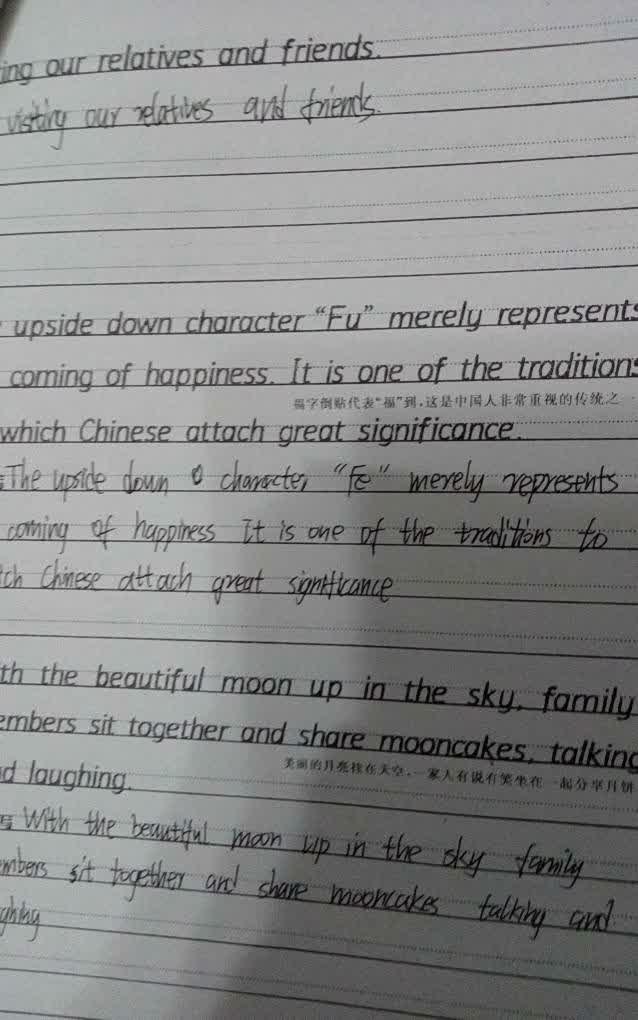 ing our relatives and friends.
visiting our relatives and friends.
upside down character “Fu” merely represents
coming of happiness. It is one of the traditions
福字倒贴代表“福”到,这是中国人非常重视的传统之一
which Chinese attach great significance.
The upside down character "Fe" merely represents
coming of happiness It is one of the traditions to
ch Chinese attach great significance
th the beautiful moon up in the sky, family
embers sit together and share mooncakes, talking
美丽的月亮挂在天空,一家人有说有笑坐在一起分享月饼
d laughing.
With the beautiful moon up in the sky family
mbers sit together and share mooncakes talking and
ghing